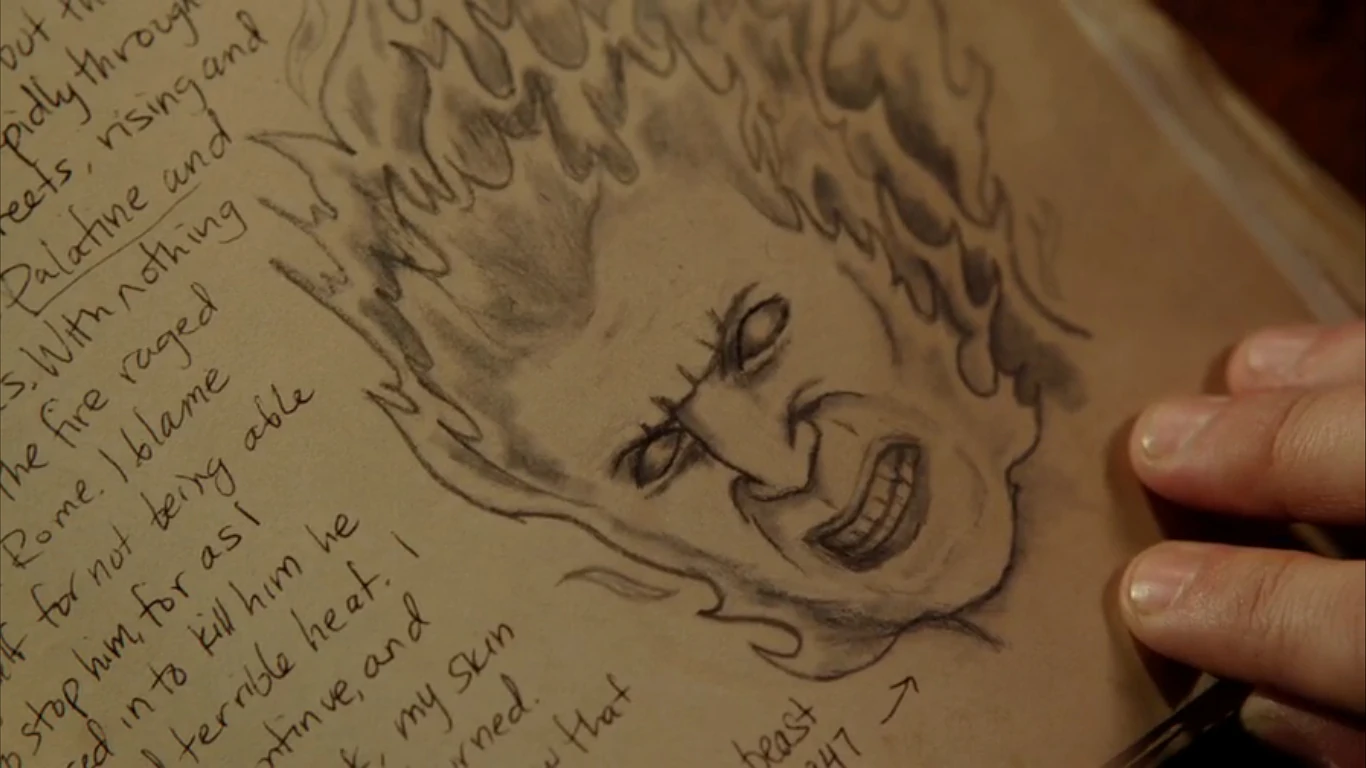 but th
pidly through
reets, rising and
Palatine and
s. With nothing
the fire raged
Rome. I blame
for not being able
stop him, for as I
sed in to kill him he
terrible heat. I
ontinue, and
my skin
urned.
that
beast
247